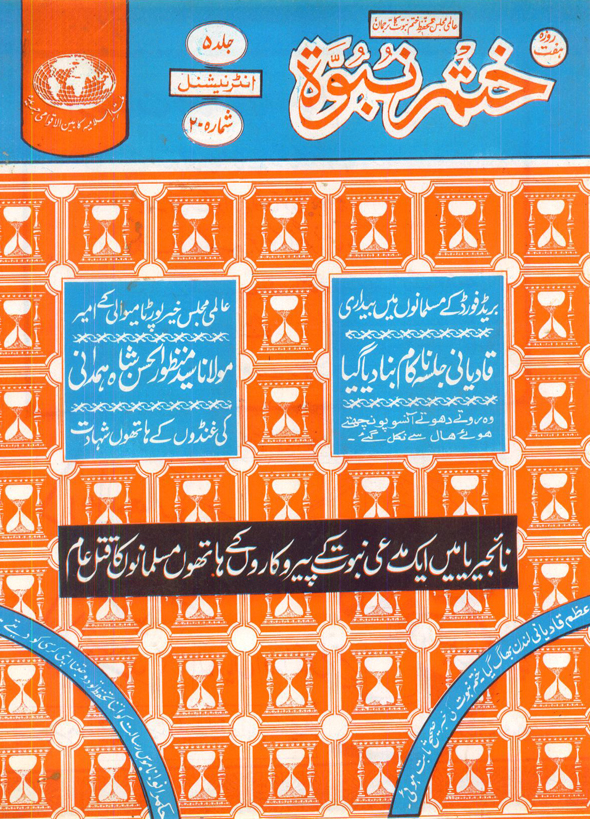 عالمی مجلس تحفظ ختم نبوت کا ترجمان
ہفت روزہ
ختم نبوۃ
جلد ۵
انٹرنیشنل
شمارہ ۲۰
بریڈفورڈ کے مسلمانوں میں بیداری
قادیانی جلسہ ناکام بنا دیا گیا
وہ روتے دھوتے آنسو پونچھتے
ہوئے ھال سے نکل گئے۔
عالمی مجلس خیرپورٹامیوالی کے امیر
مولانا سید منظور الحسن شاہ ہمدانی
کی غنڈوں کے ہاتھوں شہادت
نائجیریا میں ایک مدعی نبوت کے پیروکاروں کے ہاتھوں مسلمانوں کا قتل عام
عظم قادیانی لندن بھاگ گیا ختم نبوت